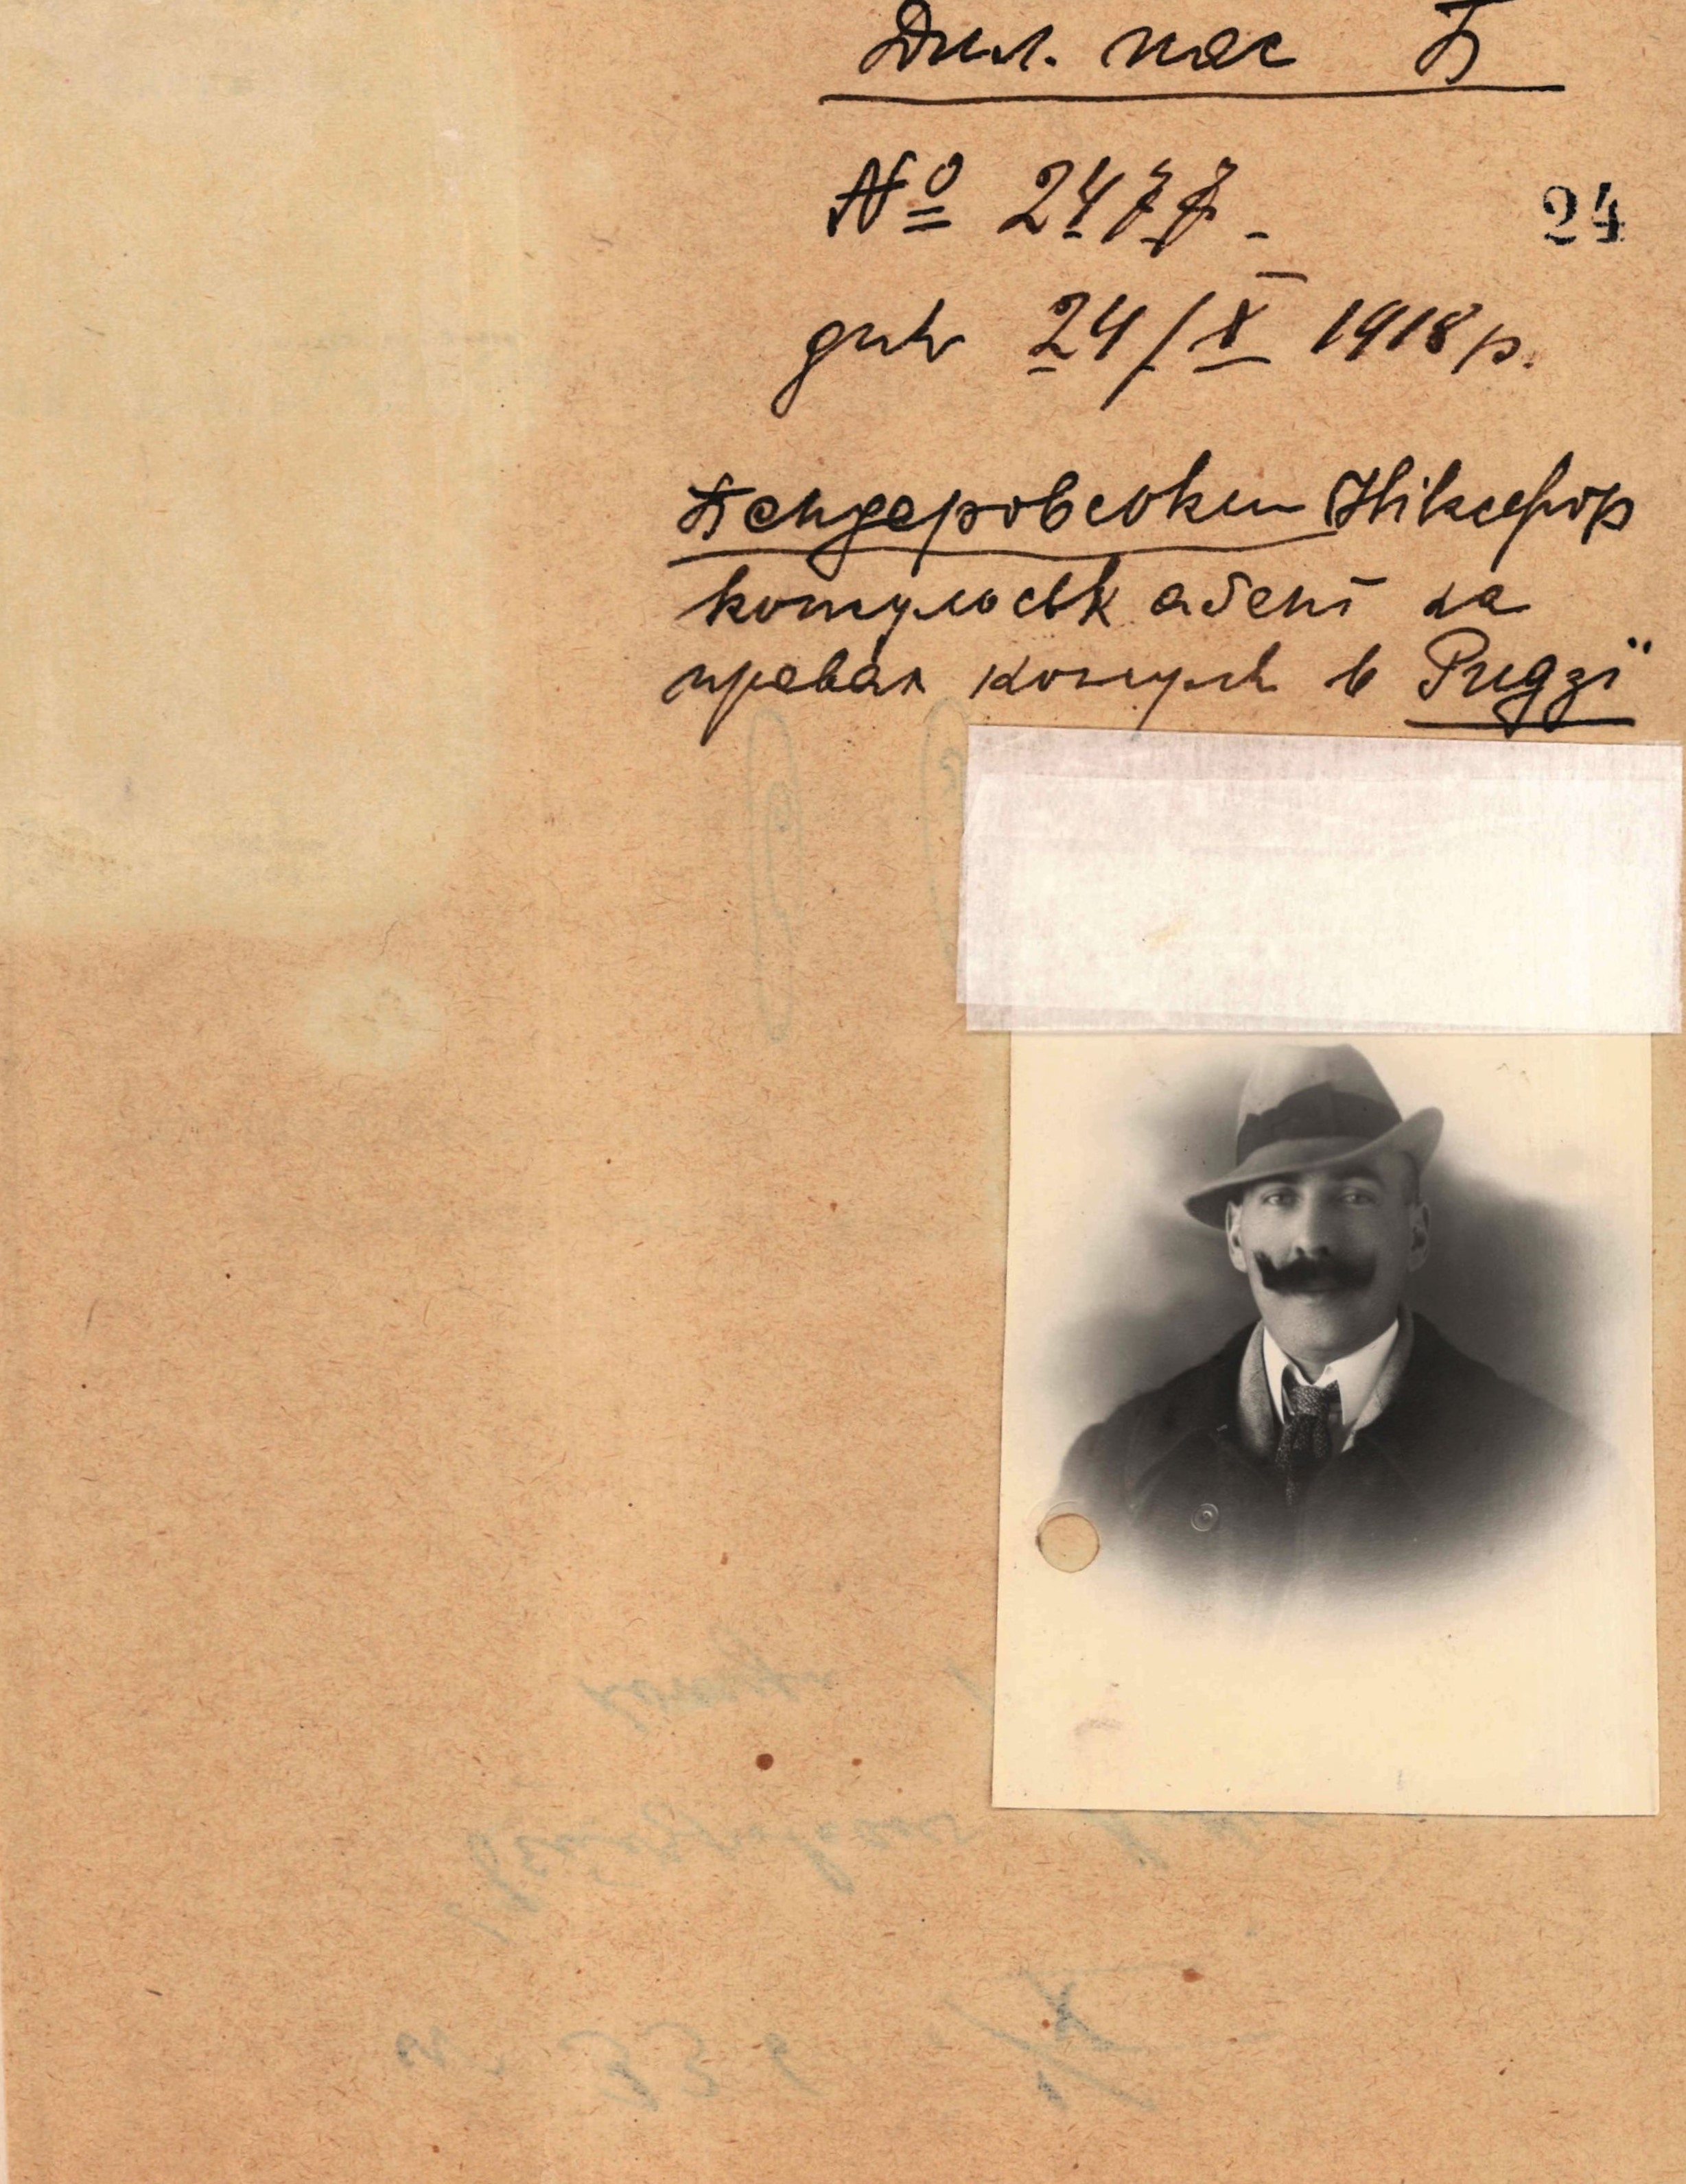 Дип. пас Б
№ 2477 -
24
дня 24/X 1918 р.
Бендеровський Нікіфор
консульськ агент на
правах консула в Ридзі